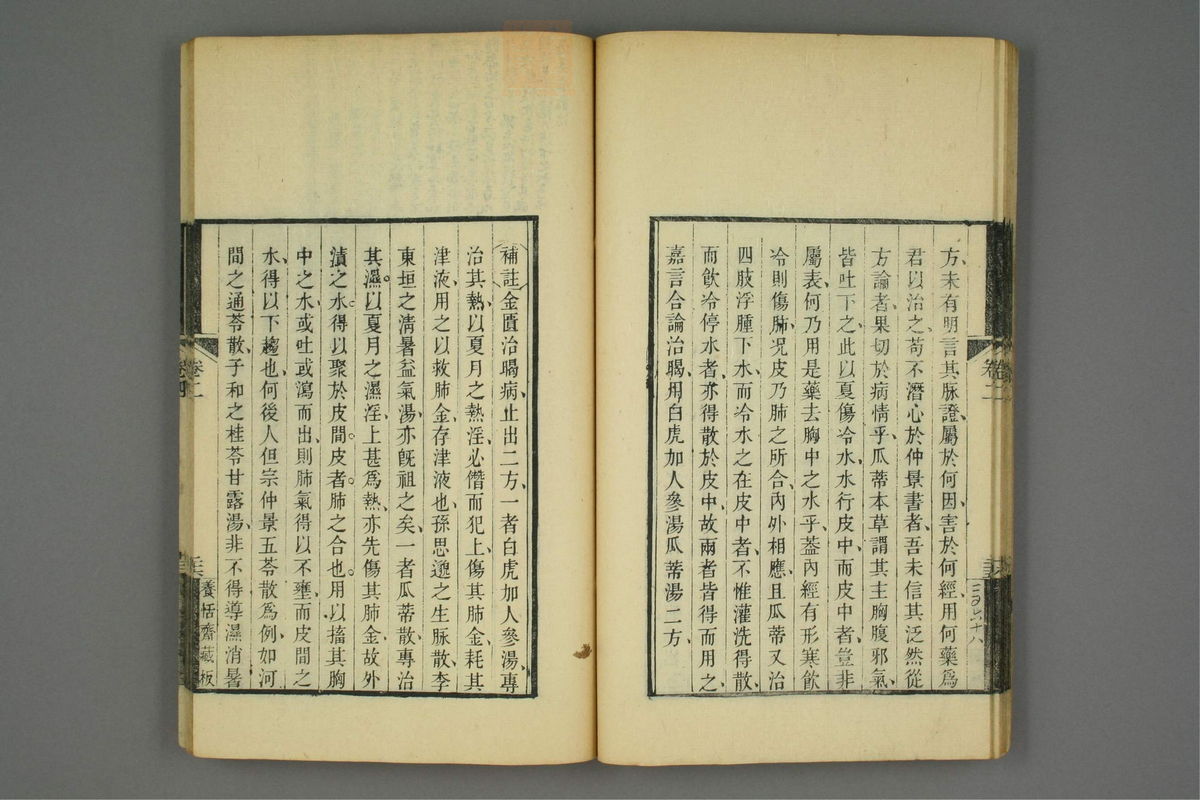 方未有明言其脉證屬於何因害於何經用何藥爲
君以治之苟不潛心於仲景書者吾未信其泛然從
方論者果切於病情乎瓜蒂本草謂其主胸腹邪氣
皆吐下之此以夏傷冷水水行皮中而皮中者豈非
屬表何乃用是藥去胸中之水乎葢內經有形寒飲
冷則傷肺況皮乃肺之所合內外相應且瓜蒂又治
四肢浮腫下水而冷水之在皮中者不惟灌洗得散
而飲冷停水者亦得散於皮中故兩者皆得而用之
嘉言合論治暍用白虎加人參湯瓜蒂湯二方
卷二
補註金匱治暍病止出二方一者白虎加人參湯專
治其熱以夏月之熱淫必僭而犯上傷其肺金耗其
津液用之以救肺金存津液也孫思邈之生脉散李
東垣之清暑益氣湯亦旣祖之矣一者瓜蒂散專治
其濕以夏月之濕淫上甚爲熱亦先傷其肺金故外
漬之水得以聚於皮間皮者肺之合也用以搐其胸
中之水或吐或瀉而出則肺氣得以不壅而皮間之
水得以下趨也何後人但宗仲景五苓散爲例如河
間之通苓散子和之桂苓甘露湯非不得導濕消暑
卷二
養恬齋藏板